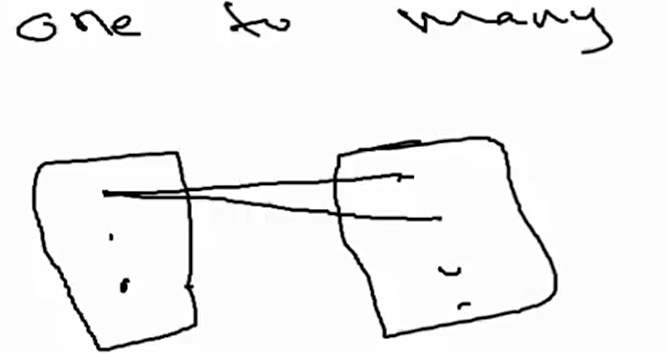 one to many